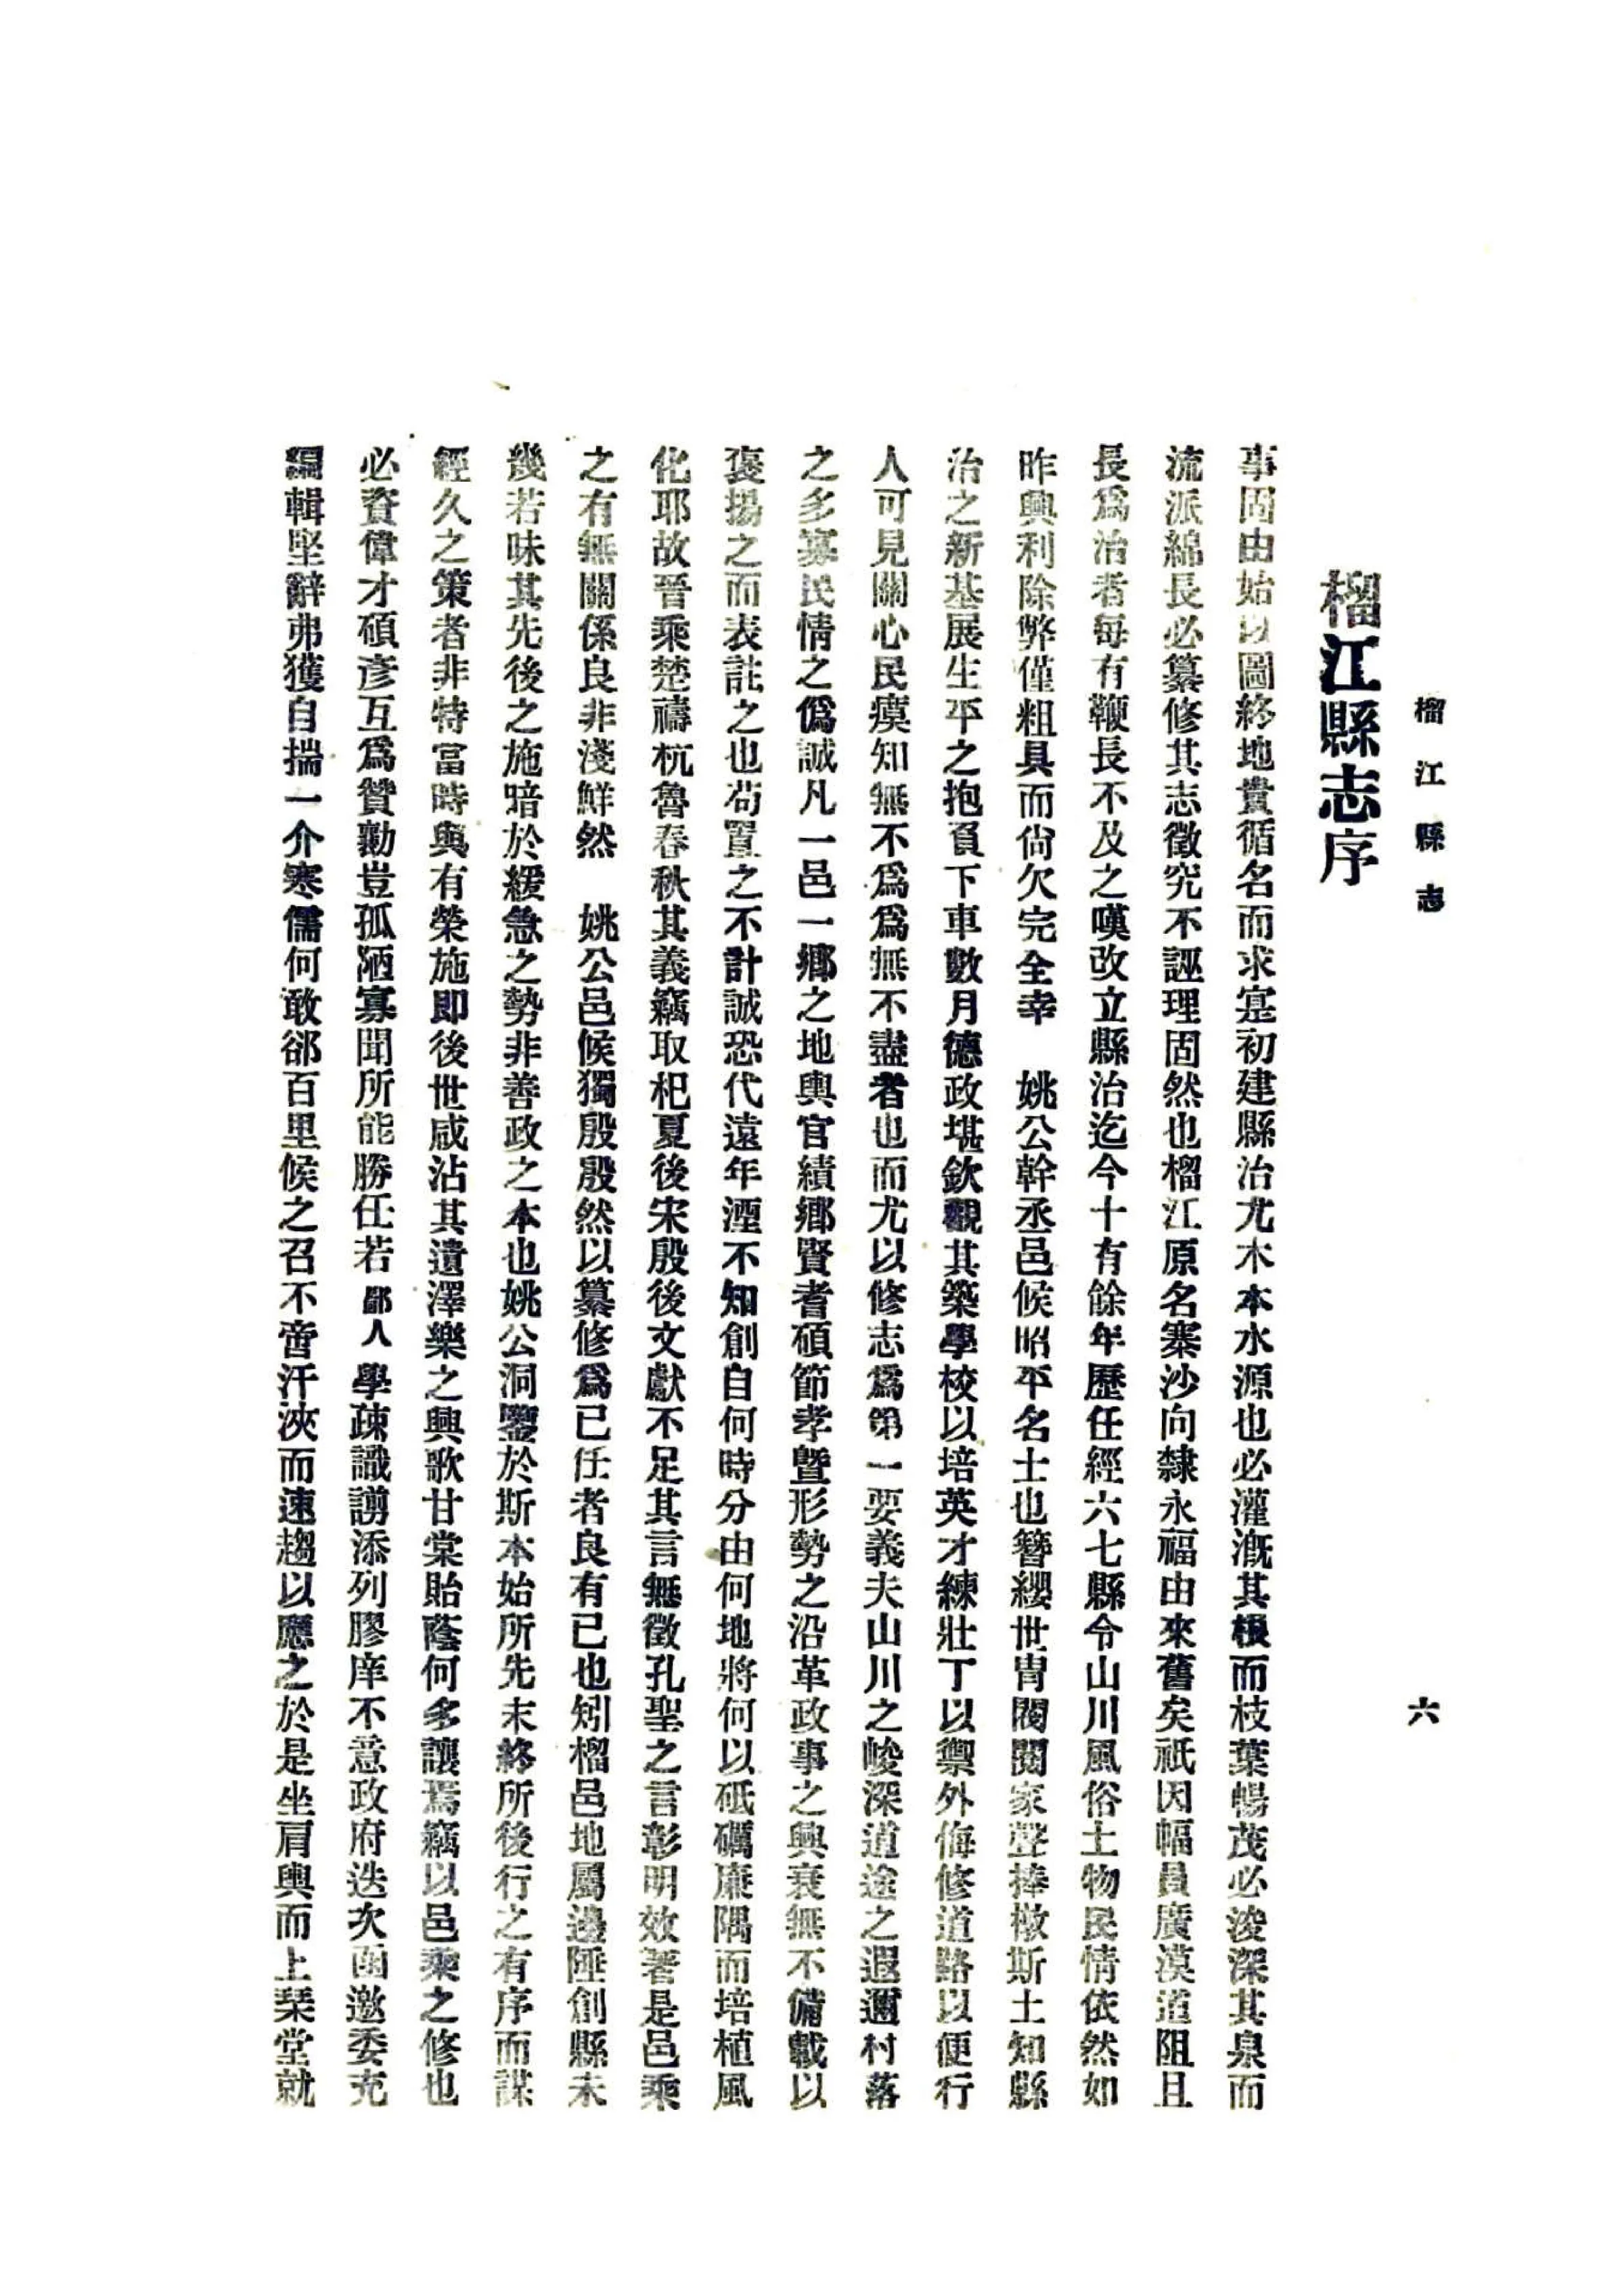 榴江縣志
六
榴江縣志序
事固由始以圖終地貴循名而求寔初建縣治尤木本水源也必灌漑其根而枝葉暢茂必浚深其泉而
流派綿長必纂修其志徵究不誣理固然也榴江原名寨沙向隸永福由來舊矣祇因幅員廣漠道阻且
長爲治者每有鞭長不及之嘆改立縣治迄今十有餘年歷任經六七縣令山川風俗土物民情依然如
昨興利除弊僅粗具而尙欠完全幸　姚公幹丞邑候昭平名士也簪纓世胄閥閱家聲捧檄斯土知縣
治之新基展生平之抱負下車數月德政堪欽觀其築學校以培英才練壯丁以禦外侮修道路以便行
人可見關心民瘼知無不爲爲無不盡者也而尤以修志爲第一要義夫山川之峻深道途之遐邇村落
之多寡民情之僞誠凡一邑一鄕之地輿官績鄕賢耆碩節孝曁形勢之沿革政事之興衰無不備載以
褒揚之而表註之也苟置之不計誠恐代遠年湮不知創自何時分由何地將何以砥礪廉隅而培植風
化耶故晉乘楚檮杌魯春秋其義竊取杞夏後宋殷後文獻不足其言無徵孔聖之言彰明效著是邑乘
之有無關係良非淺鮮然　姚公邑候獨殷殷然以纂修爲已任者良有已也矧榴邑地屬邊陲創縣未
幾若味其先後之施暗於緩急之勢非善政之本也姚公洞鑒於斯本始所先末終所後行之有序而謀
經久之策者非特當時與有榮施即後世咸沾其遺澤樂之興歌甘棠貽蔭何多讓焉竊以邑乘之修也
必資偉才碩彥互爲贊勷豈孤陋寡聞所能勝任若鄙人學疎識謭添列膠庠不意政府迭次函邀委充
編輯堅辭弗獲自揣一介寒儒何敢郤百里候之召不啻汗浹而速趨以應之於是坐肩輿而上琹堂就